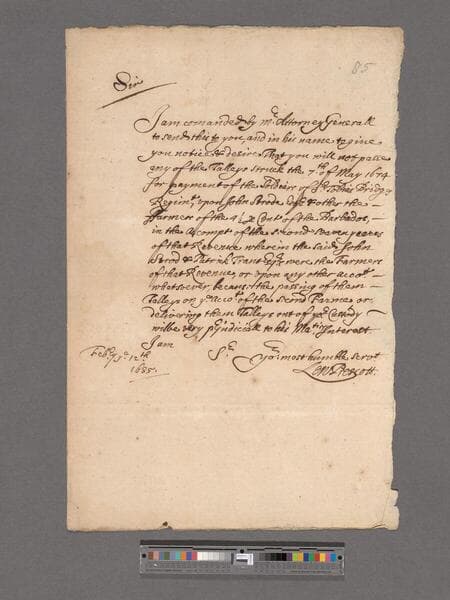 85
Sir
I am comanded by Mr. Attorney Generall
to send this to you, and in his name to give
you notice & desire, That you will not passe
any of the Talleys struck the 7th of May 1674
for payment of the Soldiers of Sr. Tobias Bridge's
Regimt. upon John Strode Esqr. & other the
ffarmers of the 4½ p Cent of the Barbados,
in the Accompt of the second seven yeares
of that Revenue wherein the said John
Strod & Patrick Trant Esqrs were the Farmers
of that Revenue, or upon any other accot.
whatsoever, because the passing of them
Talleys on ye acco. of the second Farme or
delivering them Talleys out of yor Custody
wilbe very prjudiciall to his Maties Interest
I am
Feb.ry ye 12th. Sr. Yor. most humble Servt
1685.